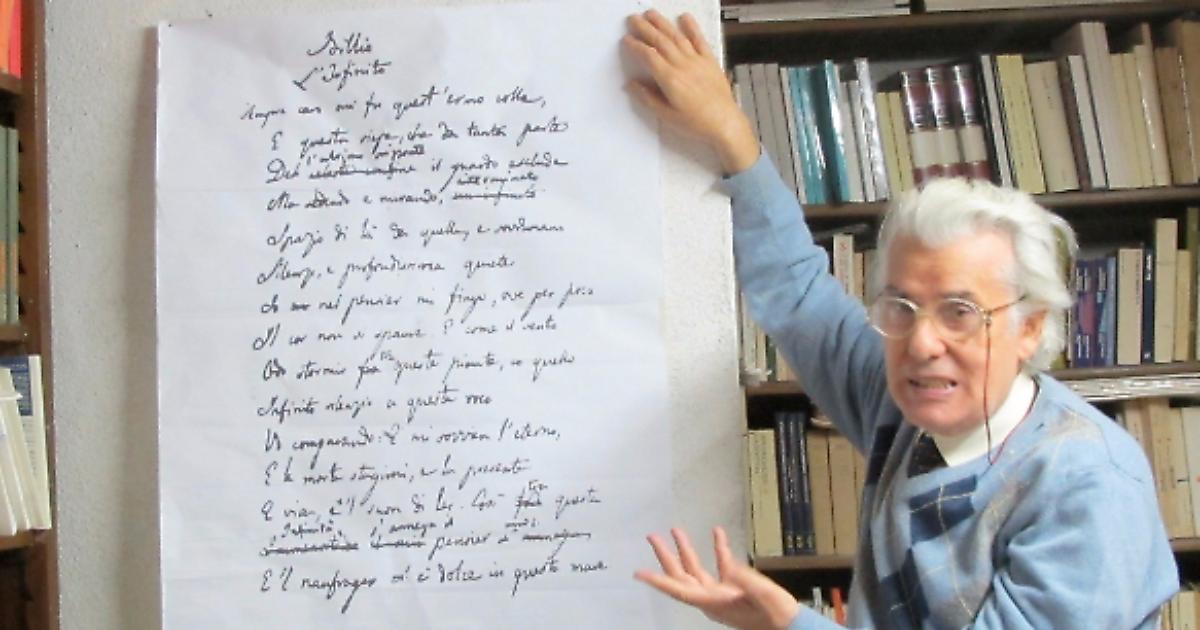 Idillio
L'Infinito
Sempre caro mi fu quest'ermo colle,
E questa siepe, che da tanta parte
l'ultimo orizzonte
Del celeste confine il guardo esclude
interminato
Ma sedendo e mirando, un infinito
Spazio di là da quella, e sovrumani
Silenzi, e profondissima quiete
Io nel pensier mi fingo, ove per poco
Il cor non si spaura. E come il vento
Odo stormir fra queste piante, io quello
Infinito silenzio a questa voce
Vo comparando: E mi sovvien l'eterno,
E le morte stagioni, e la presente
E viva, e'l suon di lei. Così fra questa
Infinità s'annega il mio
Immensitade il mio pensier s'annega,
E 'l naufragar m'è dolce in questo mare